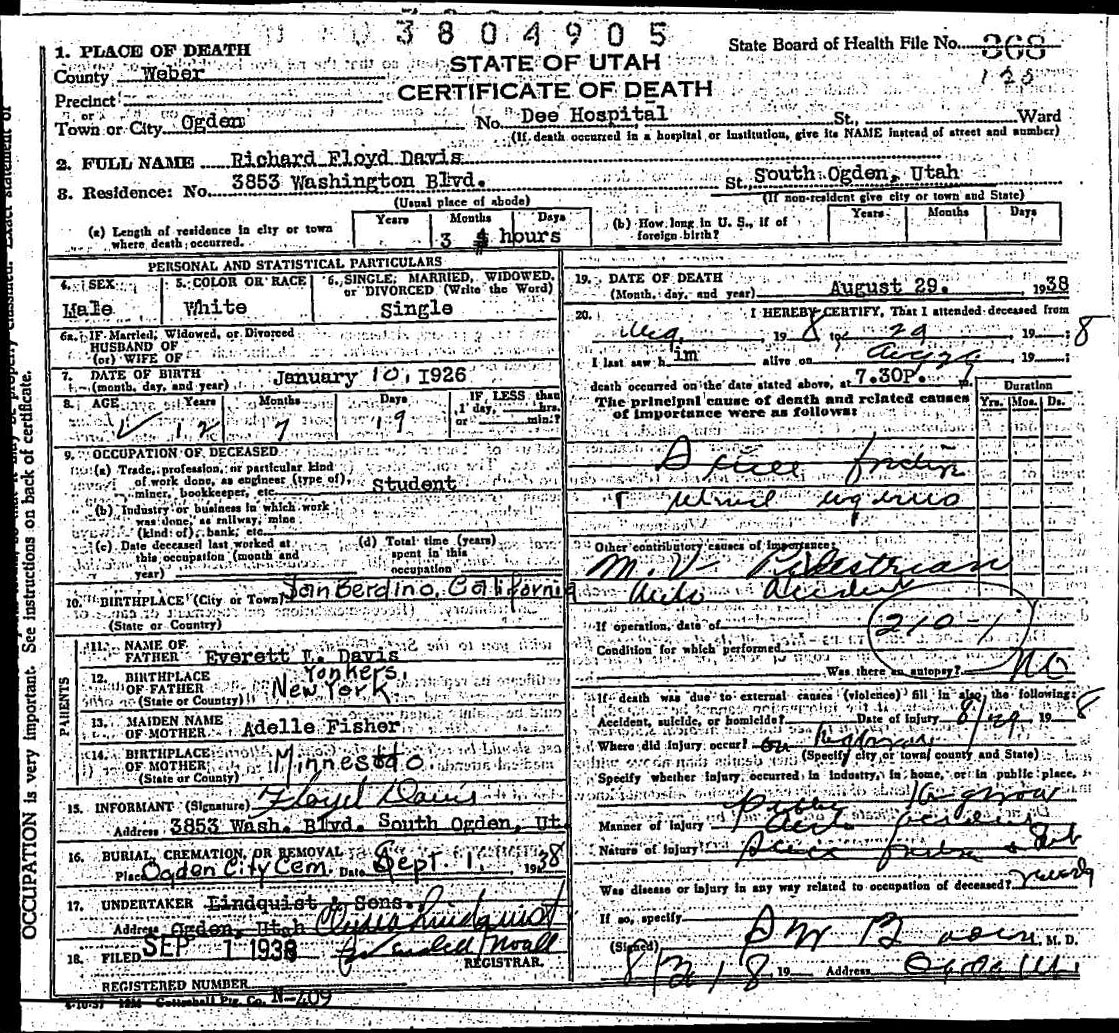 3804905
State Board of Health File No. 368
125
1. PLACE OF DEATH
STATE OF UTAH
County Weber
CERTIFICATE OF DEATH
Precinct
or
Town or City Ogden No. Dee Hospital St., Ward
(If death occurred in a hospital or institution, give its NAME instead of street and number)
2. FULL NAME Richard Floyd Davis
3. Residence: No. 3853 Washington Blvd. St., South Ogden, Utah
(Usual place of abode) (If non-resident give city or town and State)
(a) Length of residence in city or town where death occurred. Years Months Days
3 hours
(b) How long in U. S., if of foreign birth? Years Months Days
PERSONAL AND STATISTICAL PARTICULARS
4. SEX 5. COLOR OR RACE 6. SINGLE, MARRIED, WIDOWED, or DIVORCED (Write the Word)
Male White Single
6a. IF Married, Widowed, or Divorced
HUSBAND OF
(or) WIFE OF
7. DATE OF BIRTH
(month, day, and year) January 10, 1926
8. AGE Years Months Days IF LESS than 1 day, hrs. or min.?
12 7 19
9. OCCUPATION OF DECEASED
(a) Trade, profession, or particular kind of work done, as engineer (type of), miner, bookkeeper, etc. Student
(b) Industry or business in which work was done, as railway, mine (kind of), bank, etc.
(c) Date deceased last worked at this occupation (month and year)
(d) Total time (years) spent in this occupation
10. BIRTHPLACE (City or Town) San Berdino, California
(State or Country)
PARENTS
11. NAME OF FATHER Everett L. Davis
12. BIRTHPLACE OF FATHER Yonkers,
(State or Country) New York
13. MAIDEN NAME OF MOTHER Adelle Fisher
14. BIRTHPLACE OF MOTHER Minnesota
(State or County)
15. INFORMANT (Signature) Floyd Davis
Address 3853 Wash. Blvd. South Ogden, Ut.
16. BURIAL, CREMATION, OR REMOVAL
Place Ogden City Cem. Date Sept. 1, 1938
17. UNDERTAKER Lindquist & Sons.
Address Ogden, Utah Lindquist
18. FILED SEP 1 1938
REGISTRAR.
REGISTERED NUMBER N-209
19. DATE OF DEATH
(Month, day, and year) August 29. 1938
20. I HEREBY CERTIFY, That I attended deceased from
Aug. 19 8 to 29 19 8
I last saw him alive on Aug 29 19
death occurred on the date stated above, at 7.30P.
The principal cause of death and related causes of importance were as follows:
Duration
Yrs. Mos. Ds.
Other contributory causes of importance:
M. V. Pedestrian
Auto Accident
If operation, date of 210-1
Condition for which performed
Was there an autopsy? No
If death was due to external causes (violence) fill in also the following:
Accident, suicide, or homicide? Date of injury 8/29 19 8
Where did injury occur? on Highway
(Specify city or town, county and State)
Specify whether injury occurred in industry, in home, or in public place.
Public Highway
Manner of injury Auto
Nature of injury
Was disease or injury in any way related to occupation of deceased?
If so, specify
(Signed) M. D.
19 Address Ogden
OCCUPATION is very important. See instructions on back of certificate.